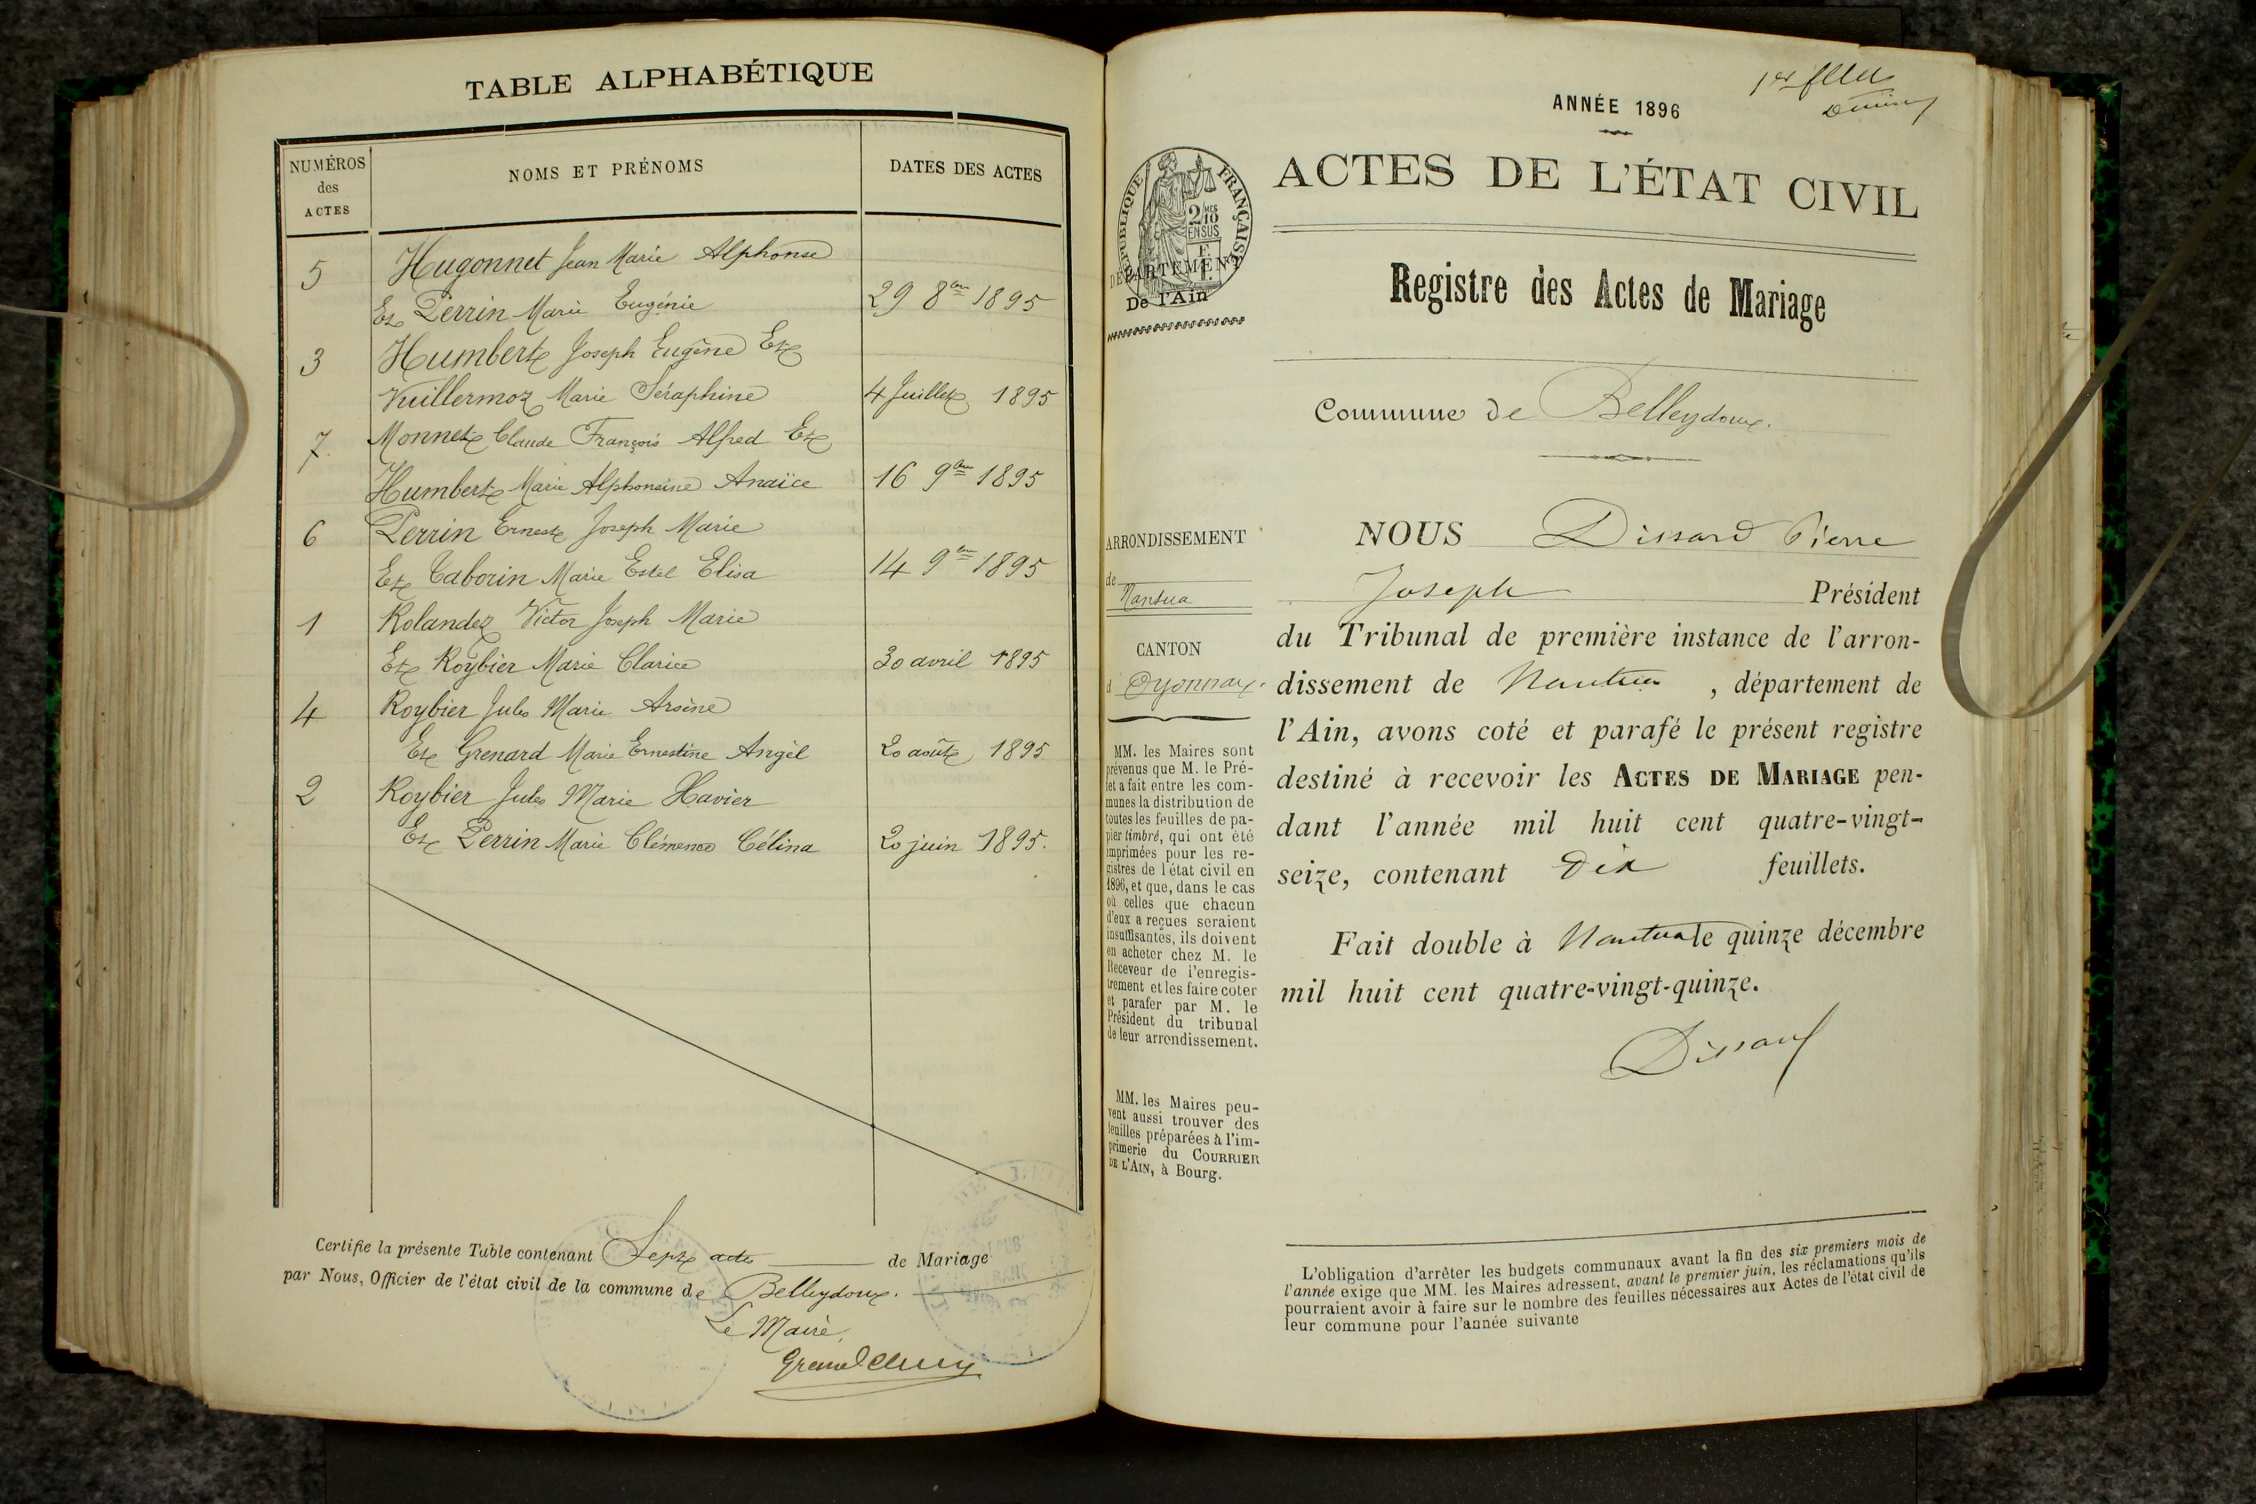 TABLE ALPHABÉTIQUE
NUMÉROS
des
ACTES
NOMS ET PRÉNOMS
DATES DES ACTES
5 Hugonnet Jean Marie Alphonse
Et Perrin Marie Eugénie 29 8bre 1895
3 Humbert Joseph Eugène Et
Vuillermoz Marie Séraphine 4 Juillet 1895
7. Monnet Claude François Alfred Et
Humbert Marie Alphonsine Anaïce 16 9bre 1895
6 Perrin Ernest Joseph Marie
Et Taborin Marie Estel Elisa 14 9bre 1895
1 Rolandez Victor Joseph Marie
Et Roybier Marie Clarice 30 avril 1895
4 Roybier Jules Marie Arsène
Et Grenard Marie Ernestine Angèl 20 août 1895
2 Roybier Jules Marie Xavier
Et Perrin Marie Clémence Célina 20 juin 1895.
Certifie la présente Table contenant Sept actes de Mariage
par Nous, Officier de l'état civil de la commune de Belleydoux.
Le Maire,
1er
ANNÉE 1896
ACTES DE L'ÉTAT CIVIL
RÉPUBLIQUE FRANÇAISE
2/10
MES
EN SUS
DÉPARTEMENT
De l'Ain
Registre des Actes de Mariage
Commune de Belleydoux.
ARRONDISSEMENT
de
Nantua
CANTON
d Oyonnax.
MM. les Maires sont
prévenus que M. le Pré-
fet a fait entre les com-
munes la distribution de
toutes les feuilles de pa-
pier timbré, qui ont été
imprimées pour les re-
gistres de l'état civil en
1896, et que, dans le cas
où celles que chacun
d'eux a reçues seraient
insuffisantes, ils doivent
en acheter chez M. le
Receveur de l'enregis-
trement et les faire coter
et parafer par M. le
Président du tribunal
de leur arrondissement.
MM. les Maires peu-
vent aussi trouver des
feuilles préparées à l'im-
primerie du COURRIER
DE L'AIN, à Bourg.
NOUS Dissard Pierre
Joseph Président
du Tribunal de première instance de l'arron-
dissement de Nantua, département de
l'Ain, avons coté et parafé le présent registre
destiné à recevoir les ACTES DE MARIAGE pen-
dant l'année mil huit cent quatre-vingt-
seize, contenant dix feuillets.
Fait double à Nantua le quinze décembre
mil huit cent quatre-vingt-quinze.
Dissard
L'obligation d'arrêter les budgets communaux avant la fin des six premiers mois de
l'année exige que MM. les Maires adressent, avant le premier juin, les réclamations qu'ils
pourraient avoir à faire sur le nombre des feuilles nécessaires aux Actes de l'état civil de
leur commune pour l'année suivante